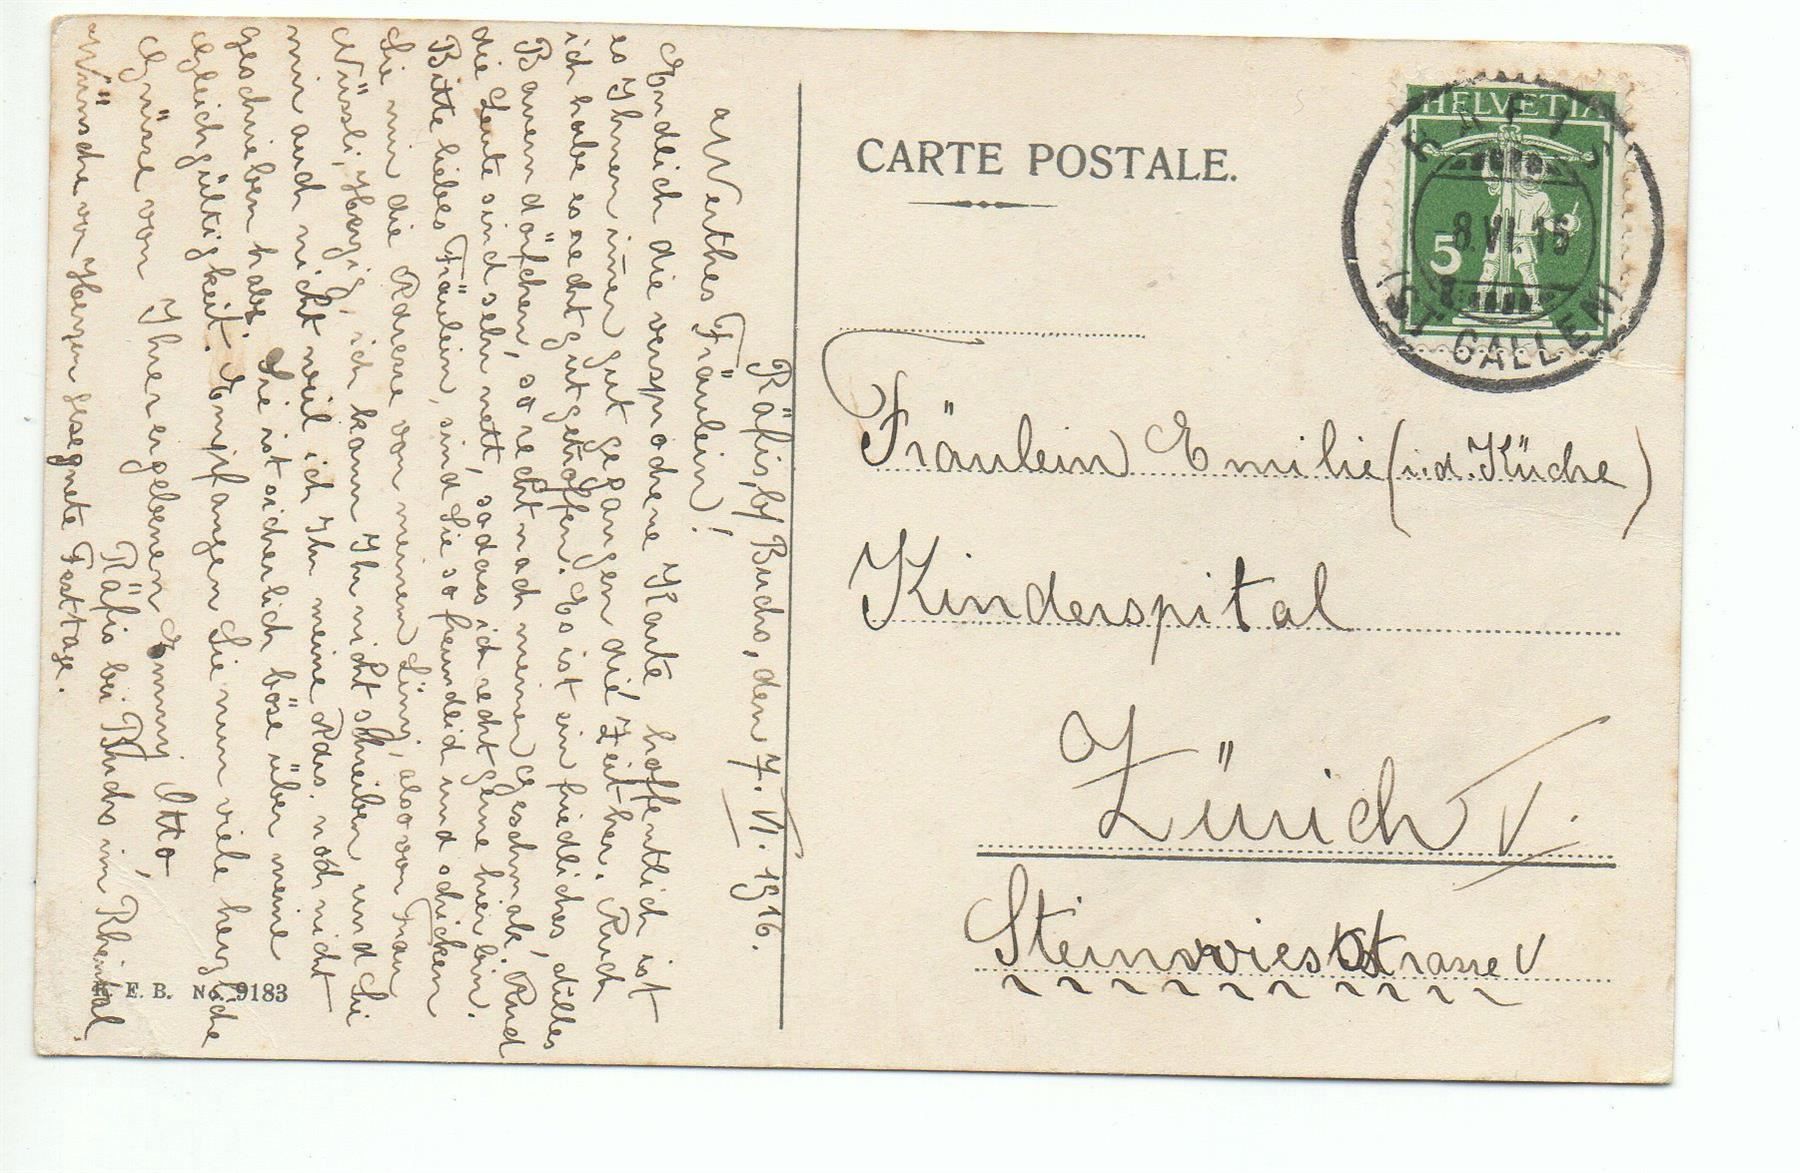 Räfis, b/ Buchs, den 7. VI. 1916.
Werthes Fräulein!
Endlich die versprochene Karte, hoffentlich ist
es Ihnen immer gut gegangen die Zeit her. Auch
ich habe es recht gut getroffen. Es ist ein friedliches, stilles
Bauerndörfchen, so recht nach meinem Geschmak. Und
die Leute sind sehr nett, sodass ich recht gerne hier bin.
Bitte liebes Fräulein, sind Sie so freundlich und schicken
Sie mir die Adresse von meinem, also von Frau
Nüssli, Herzig, ich kann Ihr nicht schreiben, und Sie
mir auch nicht weil ich Ihr meine Adrs. noch nicht
geschrieben habe. Sie ist sicherlich böse über meine
Gleichgültigkeit. Empfangen Sie nun viele herzliche
Grüsse von Ihrer ergebenen Emmy Otto,
Räfis bei Buchs im Rheintal.
Wünsche von Herzen gesegnete Festtage.
E. B. No. 9183
CARTE POSTALE.
HELVETIA
5
RÄFIS
-8.VI.16
(ST. GALLEN)
Fräulein Emilie (i.d. Küche)
Kinderspital
Zürich V.
Steinwiesstrasse V